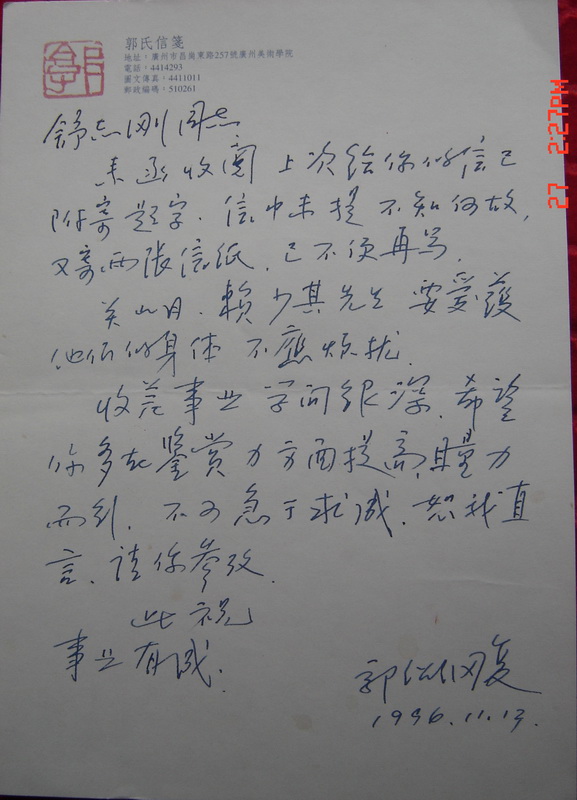 郭氏信箋
地址：廣州市昌崗東路257號廣州美術學院
電話：4414293
圖文傳真：4411011
郵政編碼：510261
舒志刚同志
来函收阅 上次给你的信已
附寄题字．信中未提 不知何故，
又寄两张信纸．已不便再写．
关山月．賴少其先生 要爱護
他们的身体 不應烦扰．
收芷事业 学问很深．希望
你多在鉴赏力方面提高，量力
而行．不可急于求成．恕我直
言．请你參攷．
此祝
事业有成．
郭绍纲复
1996.11.13.
27 2:27PM